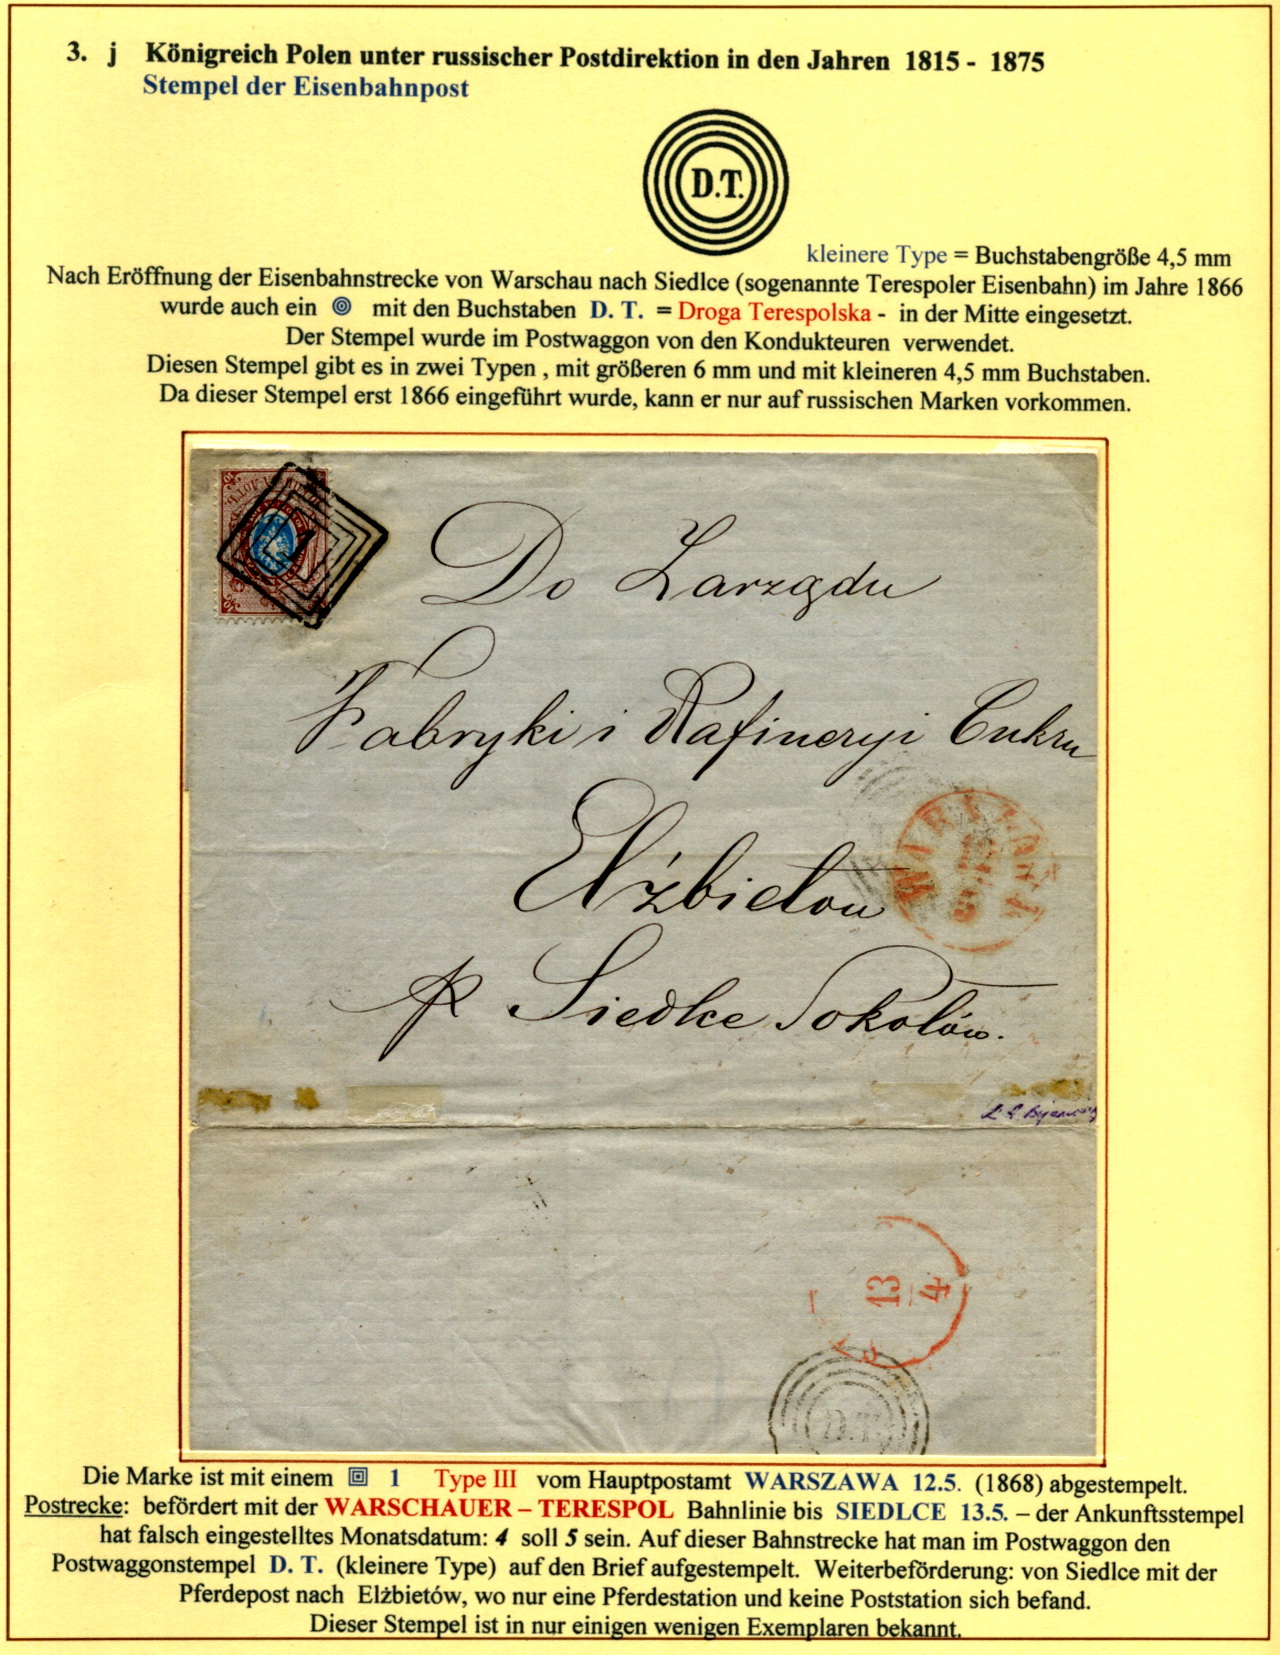 3. j Königreich Polen unter russischer Postdirektion in den Jahren 1815 - 1875
Stempel der Eisenbahnpost
D.T.
kleinere Type = Buchstabengröße 4,5 mm
Nach Eröffnung der Eisenbahnstrecke von Warschau nach Siedlce (sogenannte Terespoler Eisenbahn) im Jahre 1866
wurde auch ein mit den Buchstaben D. T. = Droga Terespolska - in der Mitte eingesetzt.
Der Stempel wurde im Postwaggon von den Kondukteuren verwendet.
Diesen Stempel gibt es in zwei Typen , mit größeren 6 mm und mit kleineren 4,5 mm Buchstaben.
Da dieser Stempel erst 1866 eingeführt wurde, kann er nur auf russischen Marken vorkommen.
1
Do Zarządu
Fabryki i Rafineryi Cukru
Elżbietow
WARSZAWA
p Siedlce Sokołów.
13
4
D.T.
Die Marke ist mit einem 1 Type III vom Hauptpostamt WARSZAWA 12.5. (1868) abgestempelt.
Postrecke: befördert mit der WARSCHAUER – TERESPOL Bahnlinie bis SIEDLCE 13.5. – der Ankunftsstempel
hat falsch eingestelltes Monatsdatum: 4 soll 5 sein. Auf dieser Bahnstrecke hat man im Postwaggon den
Postwaggonstempel D. T. (kleinere Type) auf den Brief aufgestempelt. Weiterbeförderung: von Siedlce mit der
Pferdepost nach Elżbietów, wo nur eine Pferdestation und keine Poststation sich befand.
Dieser Stempel ist in nur einigen wenigen Exemplaren bekannt.